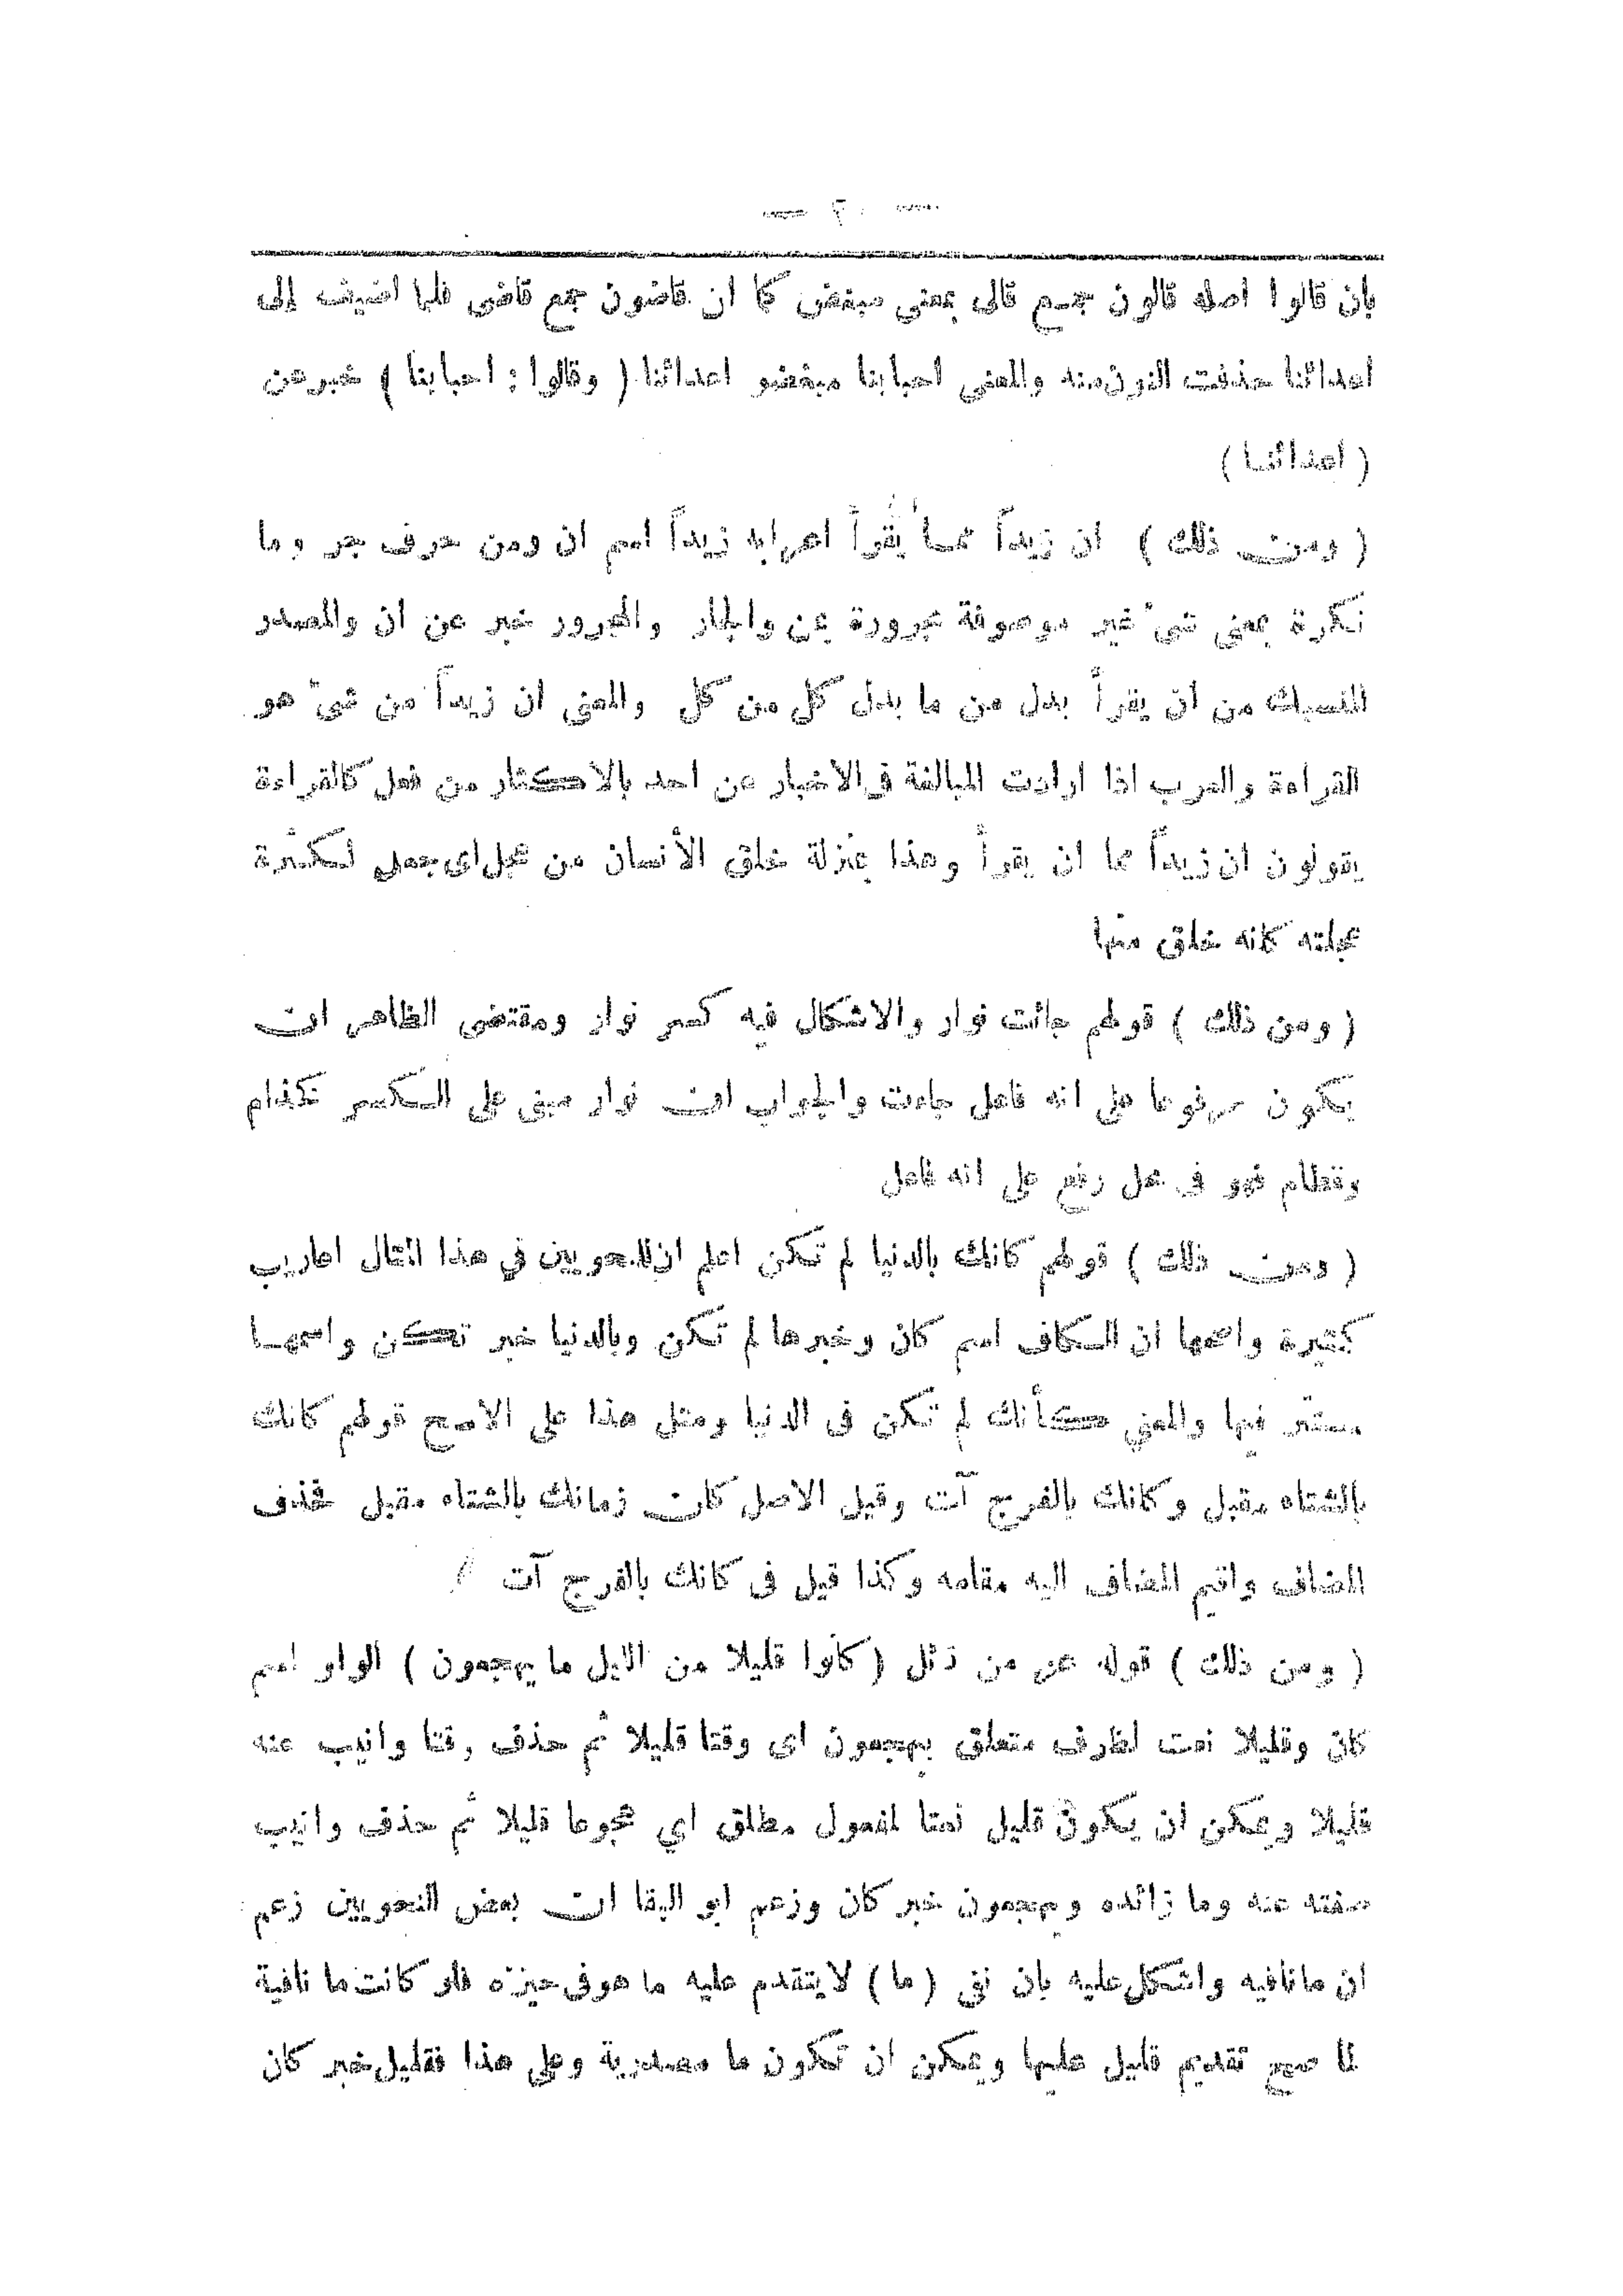 بان قالوا اصله قالون جمع قالى بمعنى مبغض كما ان قاضون جمع قاضى فلما اضيف إلى
اعدائنا حذفت النون منه والمعنى احبابنا مبغضو اعدائنا ( وقالوا : احبابنا ) خبر عن
( اعدائنا )
( ومن ذلك ) ان زيداً مما يُقرأ اعرابه زيداً اسم ان ومن حرف جر وما
نكرة بمعنى شئ غير موصوفة مجرورة بمن والجار والمجرور خبر عن ان والمصدر
المنسبك من ان يقرأ بدل من ما بدل كل من كل والمعنى ان زيداً من شئ هو
القراءة والعرب اذا ارادت المبالغة فى الاخبار عن احد بالاكثار من فعل كالقراءة
يقولون ان زيداً مما ان يقرأ وهذا بمنزلة خلق الأنسان من عجل اى جعل لكثرة
عجلته كانه خلق منها
( ومن ذلك ) قولهم جائت نوار والاشكال فيه كسر نوار ومقتضى الظاهر ان
يكون مرفوعا على انه فاعل جاءت والجواب ان نوار مبنى على الكسر كحذام
وقطام فهو فى محل رفع على انه فاعل
( ومن ذلك ) قولهم كانك بالدنيا لم تكن اعلم ان للنحويين في هذا المثال اعاريب
كثيرة واصحها ان الكاف اسم كان وخبرها لم تكن وبالدنيا خبر تكن واسمها
مستتر فيها والمعنى كأنك لم تكن فى الدنيا ومثل هذا على الاصح قولهم كانك
بالشتاه مقبل وكانك بالفرج آت وقيل الاصل كان زمانك بالشتاه مقبل فحذف
المضاف واقيم المضاف اليه مقامه وكذا قيل فى كانك بالفرج آت
( ومن ذلك ) قوله عز من قائل ( كانوا قليلا من الليل ما يهجعون ) الواو اسم
كان وقليلا نعت لظرف متعلق بيهجعون اى وقتا قليلا ثم حذف وقتا وانيب عنه
قليلا ويمكن ان يكون قليل نعتا لمفعول مطلق اي هجوعا قليلا ثم حذف وانيب
صفته عنه وما زائده ويهجعون خبر كان وزعم ابو البقا ان بعض النحويين زعم
ان ما نافيه واشكل عليه بان نفى ( ما ) لا يتقدم عليه ما هو فى حيزه فلو كانت ما نافية
لما صح تقديم قليل عليها ويمكن ان تكون ما مصدرية وعلى هذا فقليل خبر كان